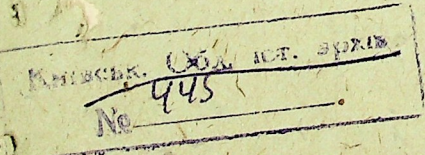 Київськ. Обл. іст. архів
№ 445